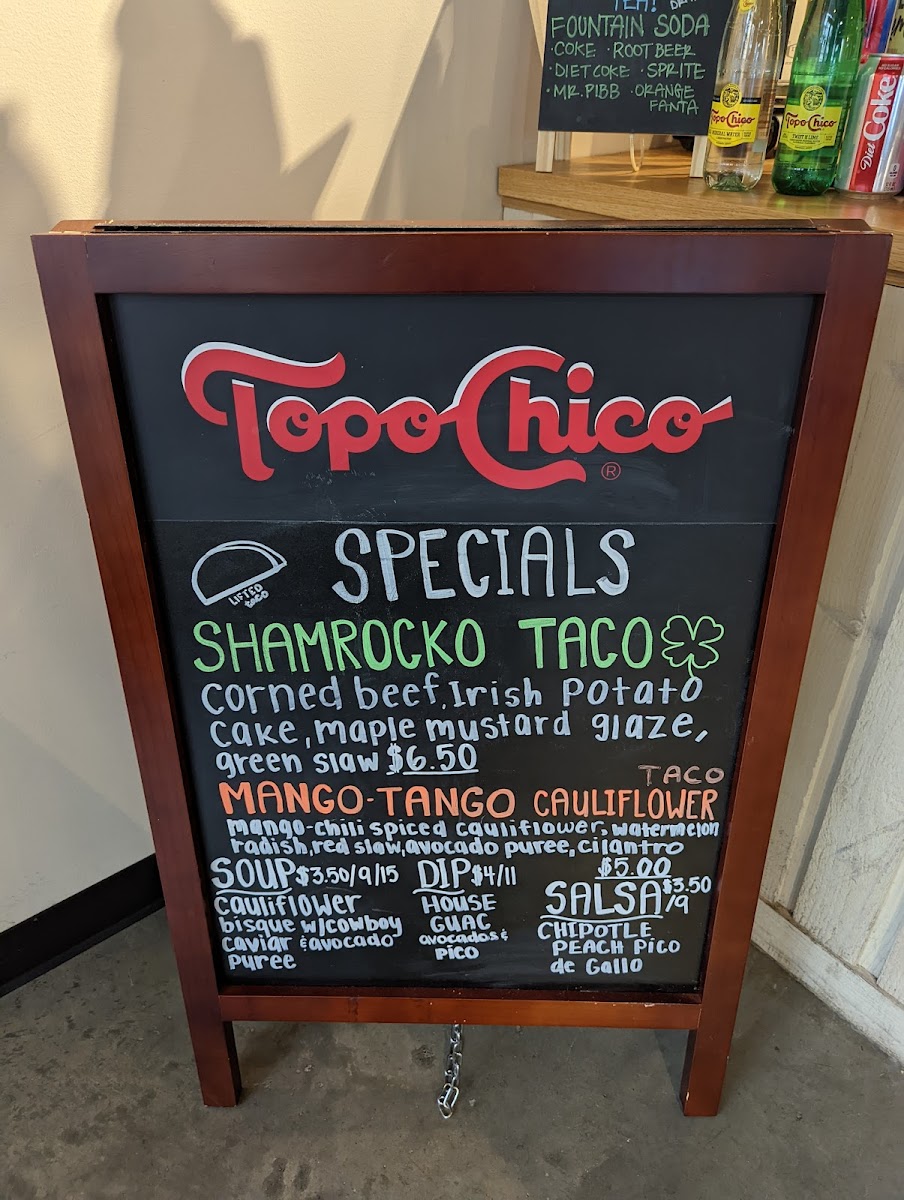 TEA!
FOUNTAIN SODA
·COKE ·ROOT BEER
·DIET COKE ·SPRITE
·MR.PIBB ·ORANGE
FANTA
Topo Chico
MINERAL WATER
Topo Chico
TWIST OF LIME
Diet Coke
Topo Chico
®
LIFTED
taco
SPECIALS
SHAMROCKO TACO
corned beef, Irish Potato
cake, maple mustard glaze,
green slaw $6.50
TACO
MANGO-TANGO CAULIFLOWER
mango-chili spiced cauliflower, watermelon
radish, red slaw, avocado puree, cilantro
$5.00
SOUP $3.50/9/15
cauliflower
bisque w/cowboy
caviar & avocado
puree
DIP $4/11
HOUSE
GUAC
avocados &
pico
SALSA $3.50
/9
CHIPOTLE
PEACH PICO
de Gallo